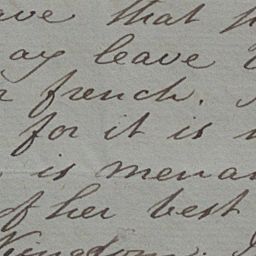 ave that
ay leave
french.
for it is
is menac
of her best
Kingdom.